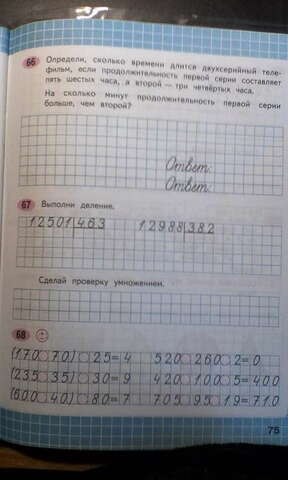 66 Определи, сколько времени длится двухсерийный теле-
фильм, если продолжительность первой серии составляет
пять шестых часа, а второй — три четвёртых часа.
На сколько минут продолжительность первой серии
больше, чем второй?
Ответ:
Ответ:
67 Выполни деление.
12501 463 12988 382
Сделай проверку умножением.
68
(170 ○ 70) ○ 25 = 4 520 ○ 260 ○ 2 = 0
(235 ○ 35) ○ 30 = 9 420 ○ 100 ○ 5 = 400
(600 ○ 40) ○ 80 = 7 705 ○ 95 ○ 19 = 710
75